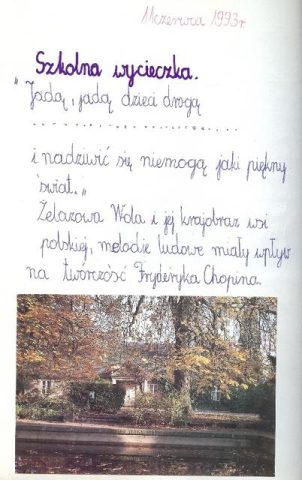 11czerwca 1993r
Szkolna wycieczka.
"Jadą, jadą dzieci drogą
..............................
i nadziwić się niemogą jaki piękny
świat."
Żelazowa Wola i jej krajobraz wsi
polskiej, melodie ludowe miały wpływ
na twórczość Fryderyka Chopina.